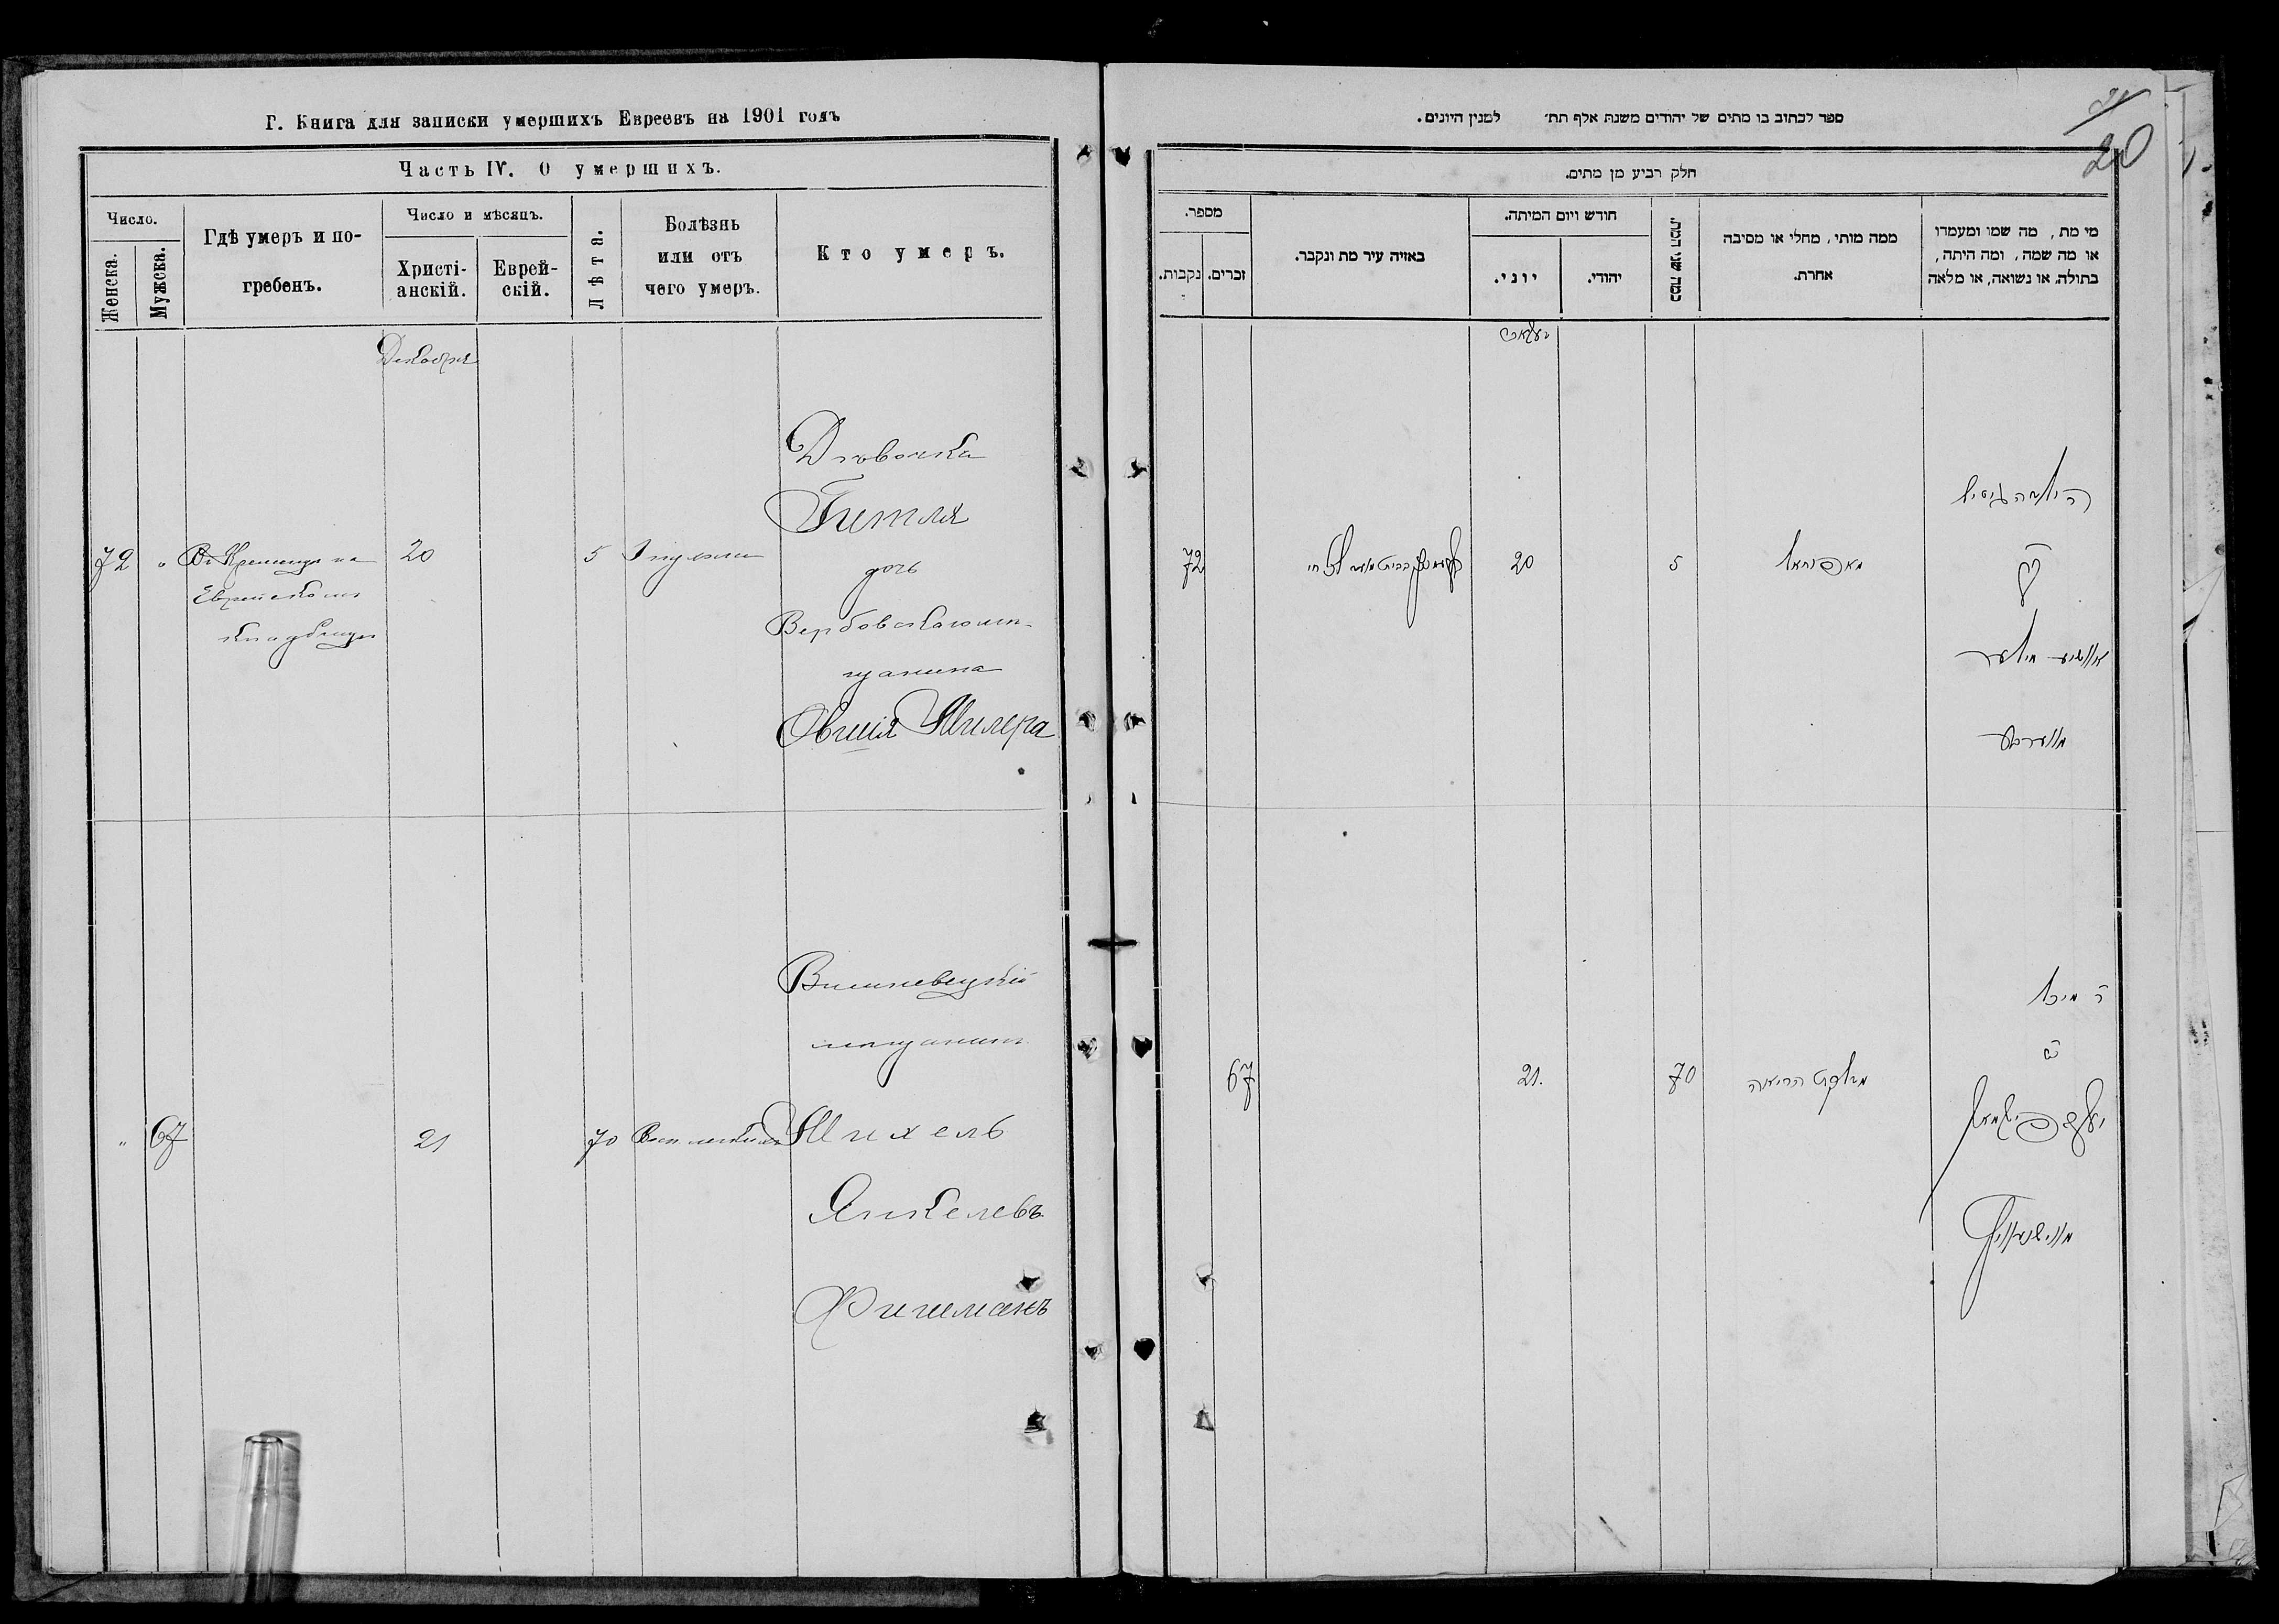 Г. Книга для записки умершихъ Евреевъ на 1901 годъ
Часть IV. О умершихъ.
Число.
Женска.
Мужска.
Гдѣ умеръ и по-
гребенъ.
Число и мѣсяцъ.
Христі-
анскій.
Еврей-
скій.
Лѣта.
Болѣзнь
или отъ
чего умеръ.
Кто умеръ.
Декабря
72
Въ Кременцѣ на
Еврейскомъ
кладбищѣ
20
5
Дѣвочка
Гитля
дочь
Вербовскаго мѣ-
щанина
Овшія Милера
"
67
21
70
Вишневецкій
мѣщанинъ
Михель
Янкелевъ
Фишманъ
ספר לכתוב בו מתים של יהודים משנת אלף תת׳ למנין היונים.
20
חלק רביע מן מתים.
מספר.
נקבות.
זכרים.
באיזה עיר מת ונקבר.
חודש ויום המיתה.
יוני.
יהודי.
כמה שני המת.
ממה מותי, מחלי או מסיבה
אחרת.
מי מת, מה שמו ומעמדו
או מה שמה, ומה היתה,
בתולה, או נשואה, או מלאה
72
20
5
הילדה גיטיל
מילער
67
21.
70
מדלקת הריאה
ר מיכל
ב